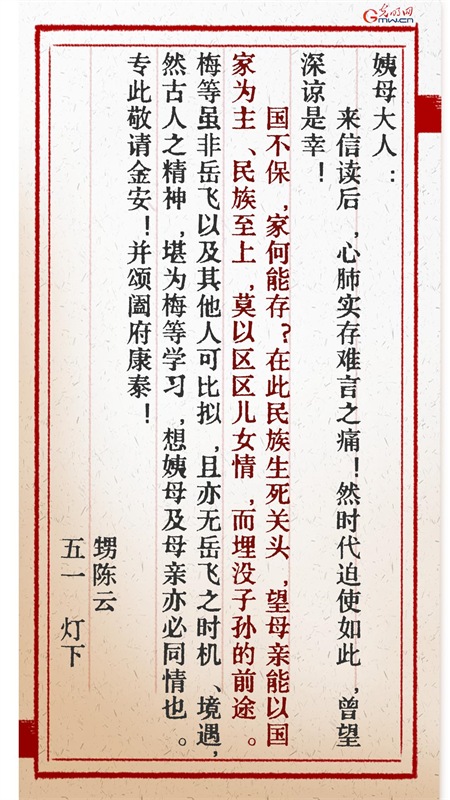 光明网
GMW.CN
姨母大人：
来信读后，心肺实存难言之痛！然时代迫使如此，曾望
深谅是幸！
国不保，家何能存？在此民族生死关头，望母亲能以国
家为主、民族至上，莫以区区儿女情，而埋没子孙的前途。
梅等虽非岳飞以及其他人可比拟，且亦无岳飞之时机、境遇，
然古人之精神，堪为梅等学习，想姨母及母亲亦必同情也。
专此敬请金安！并颂阖府康泰！
甥陈云
五一 灯下